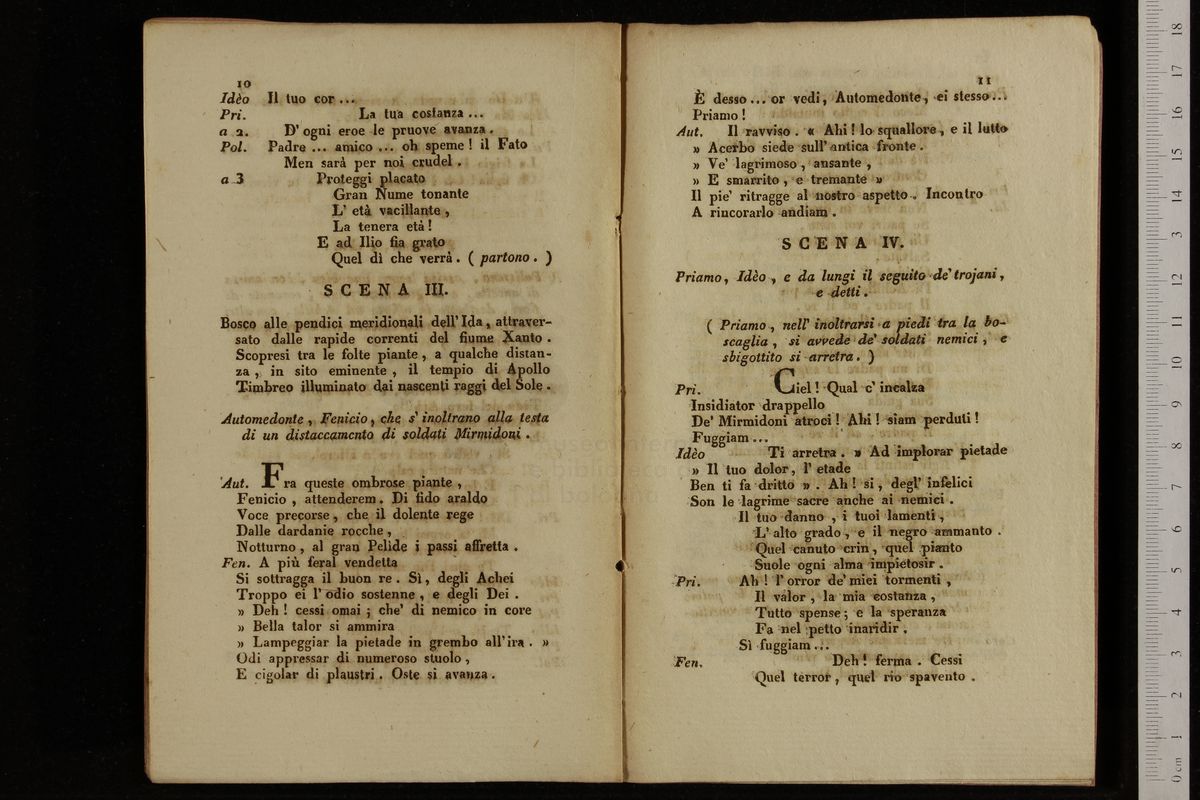 10
Idèo Il tuo cor ...
Pri. La tua costanza ...
a 2. D' ogni eroe le pruove avanza.
Pol. Padre ... amico ... oh speme! il Fato
Men sarà per noi crudel.
a 3 Proteggi placato
Gran Nume tonante
L' età vacillante,
La tenera età!
E ad Ilio fia grato
Quel dì che verrà. ( partono. )
SCENA III.
Bosco alle pendici meridionali dell' Ida, attraver-
sato dalle rapide correnti del fiume Xanto.
Scopresi tra le folte piante, a qualche distan-
za, in sito eminente, il tempio di Apollo
Timbreo illuminato dai nascenti raggi del Sole.
Automedonte, Fenicio, che s' inoltrano alla testa
di un distaccamento di soldati Mirmidoni.
Aut. Fra queste ombrose piante,
Fenicio, attenderem. Di fido araldo
Voce precorse, che il dolente rege
Dalle dardanie rocche,
Notturno, al gran Pelide i passi affretta.
Fen. A più feral vendetta
Si sottragga il buon re. Sì, degli Achei
Troppo ei l' odio sostenne, e degli Dei.
» Deh! cessi omai; che' di nemico in core
» Bella talor si ammira
» Lampeggiar la pietade in grembo all' ira. »
Odi appressar di numeroso stuolo,
E cigolar di plaustri. Oste si avanza.
11
È desso ... or vedi, Automedonte, ei stesso ...
Priamo!
Aut. Il ravviso. « Ahi! lo squallore, e il lutto
» Acerbo siede sull' antica fronte.
» Ve' lagrimoso, ansante,
» E smarrito, e tremante »
Il pie' ritragge al nostro aspetto. Incontro
A rincorarlo andiam.
SCENA IV.
Priamo, Idèo, e da lungi il seguito de' trojani,
e detti.
( Priamo, nell' inoltrarsi a piedi tra la bo-
scaglia, si avvede de' soldati nemici, e
sbigottito si arretra. )
Pri. Ciel! Qual c' incalza
Insidiator drappello
De' Mirmidoni atroci! Ahi! siam perduti!
Fuggiam ...
Idèo Ti arretra. » Ad implorar pietade
» Il tuo dolor, l' etade
Ben ti fa dritto ». Ah! si, degl' infelici
Son le lagrime sacre anche ai nemici.
Il tuo danno, i tuoi lamenti,
L' alto grado, e il negro ammanto.
Quel canuto crin, quel pianto
Suole ogni alma impietosir.
Pri. Ah! l' orror de' miei tormenti,
Il valor, la mia costanza,
Tutto spense; e la speranza
Fa nel petto inaridir.
Sì fuggiam ...
Fen. Deh! ferma. Cessi
Quel terror, quel rio spavento.